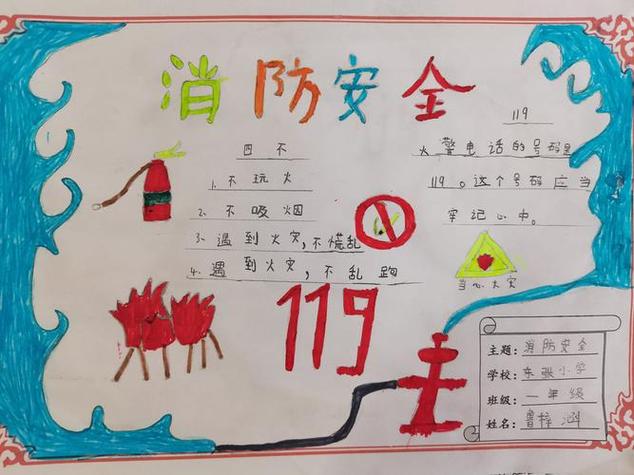 消防安全
四不
1.不玩火
2.不吸烟
3.遇到火灾,不慌乱
4.遇到火灾,不乱跑
119
火警电话的号码是
119。这个号码应当
牢记心中。
当心火灾
119
主题:消防安全
学校:东张小学
班级:一年级
姓名:曾梓涵